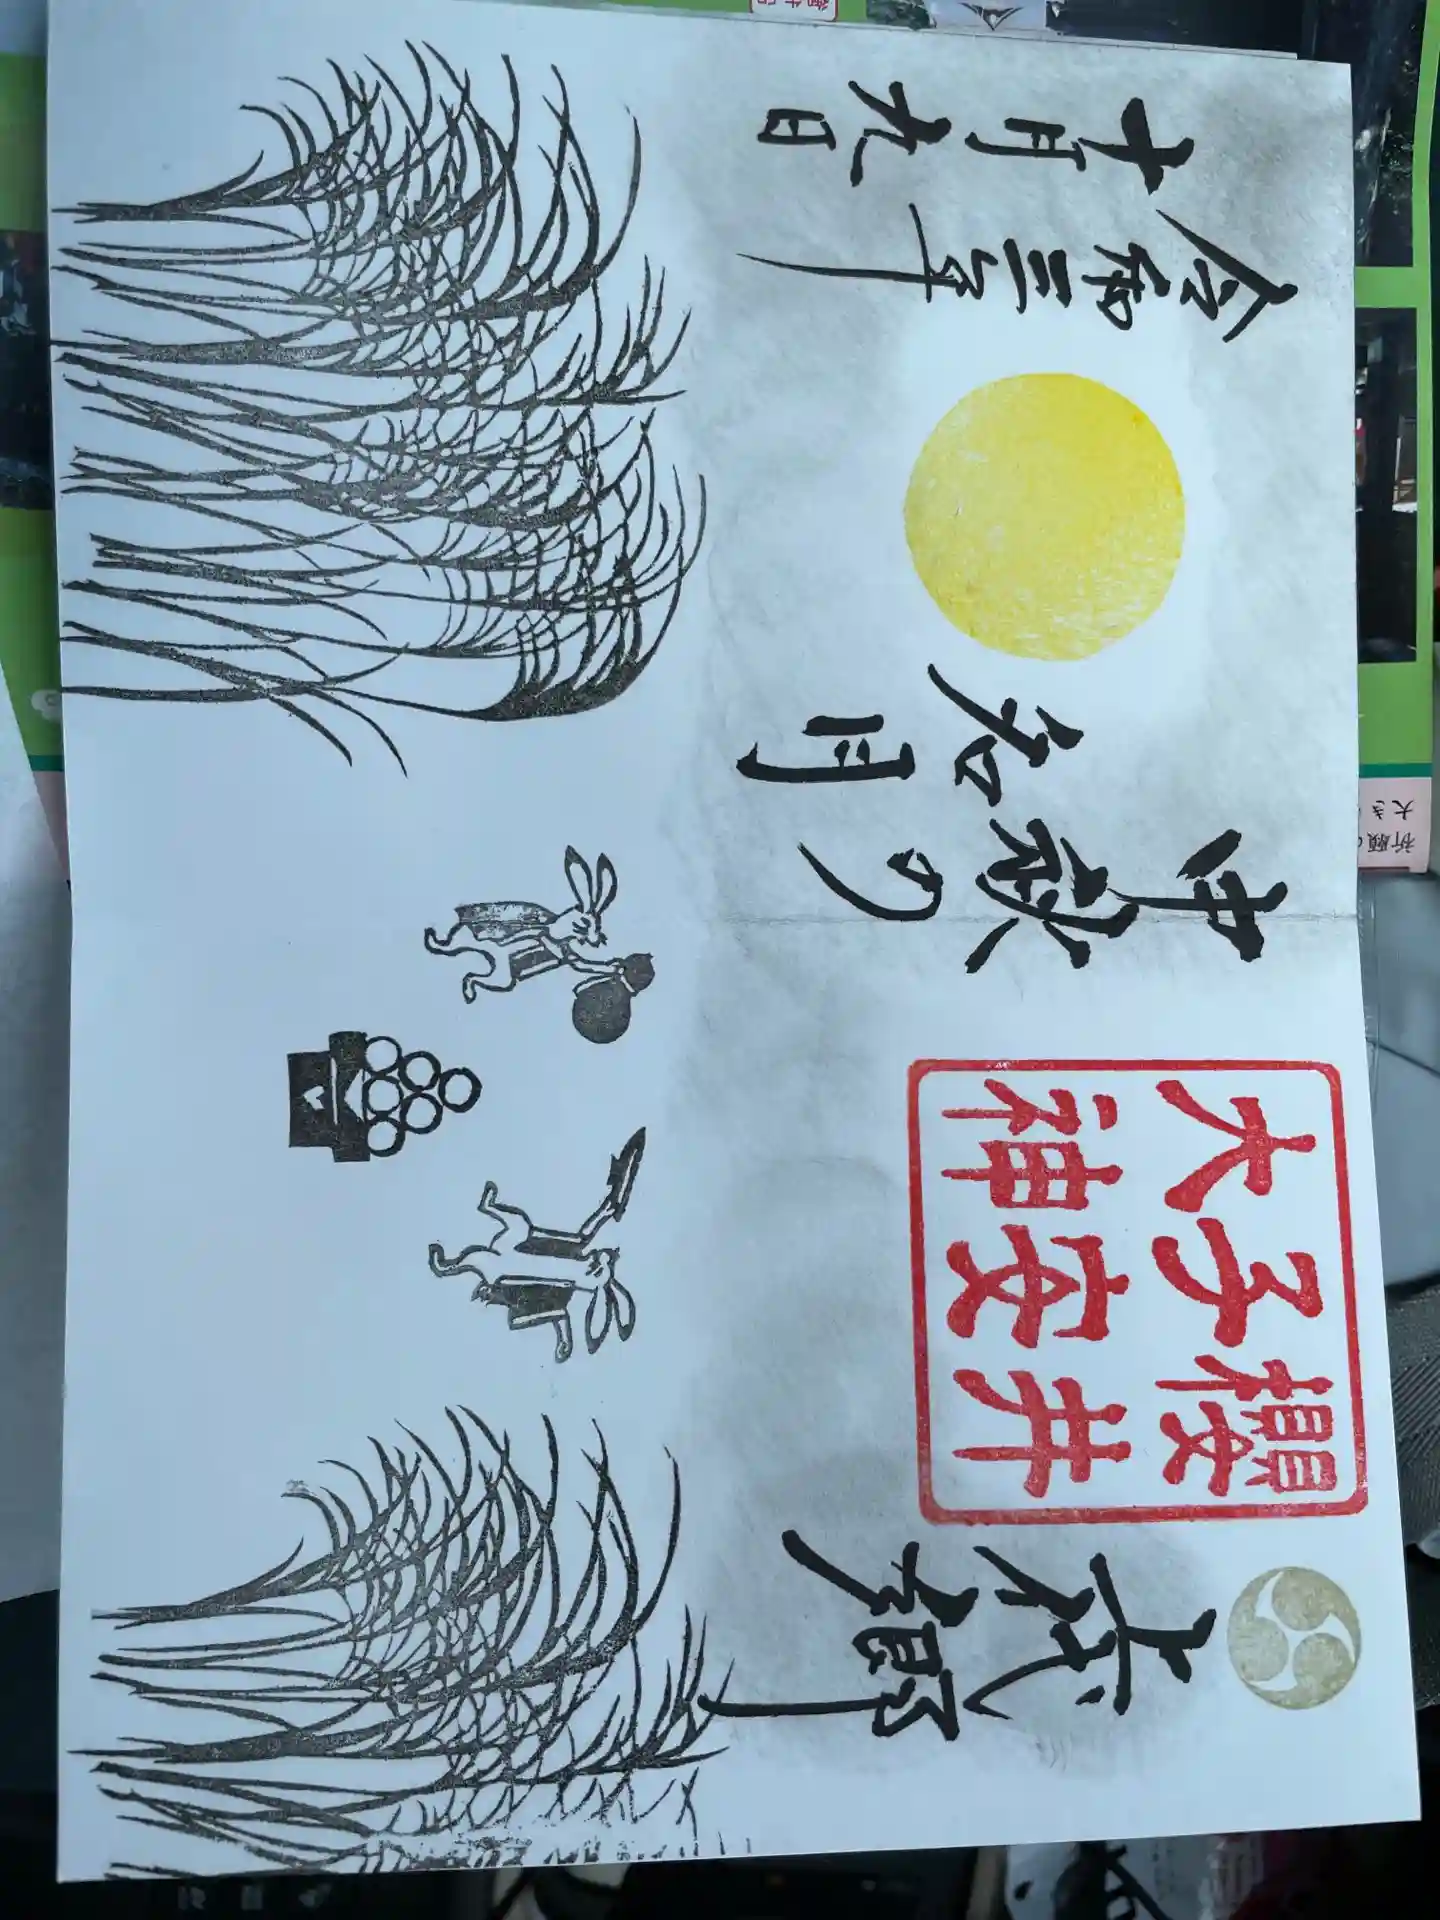 櫻井
子安
大神
中秋の
名月
令和三年
十月九日
祈願
大き